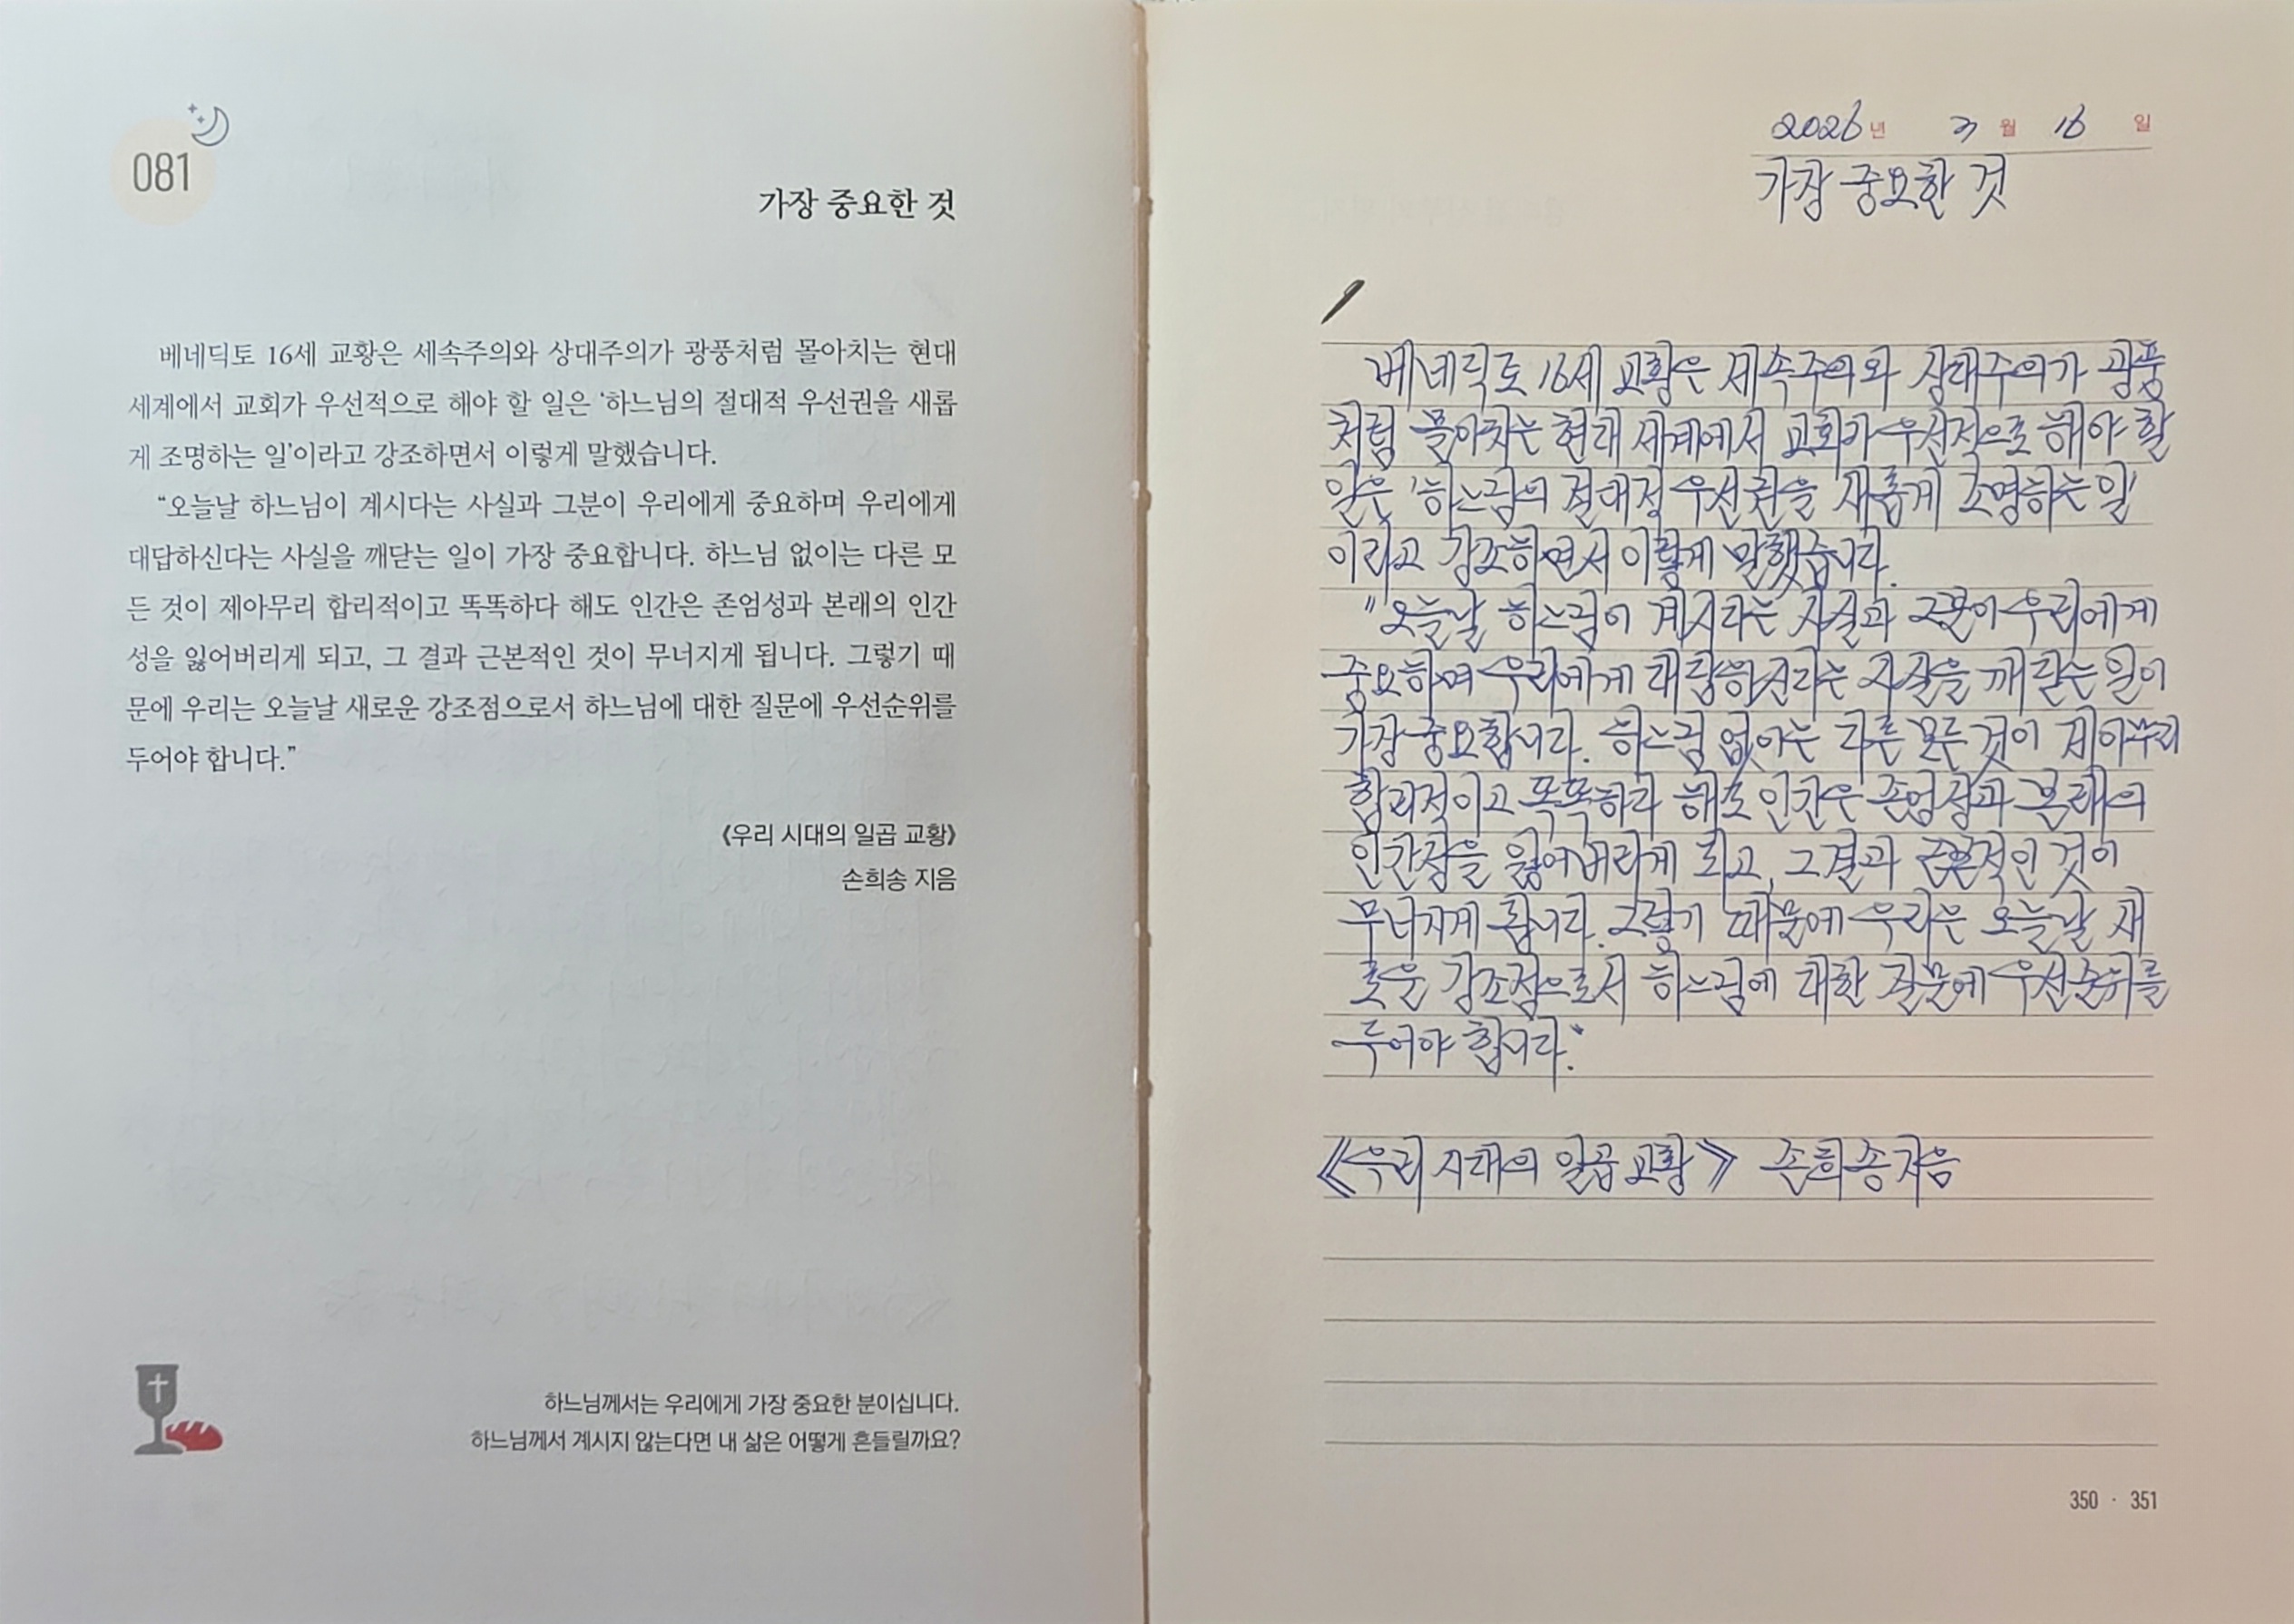 081
가장 중요한 것
베네딕토 16세 교황은 세속주의와 상대주의가 광풍처럼 몰아치는 현대
세계에서 교회가 우선적으로 해야 할 일은 ‘하느님의 절대적 우선권을 새롭
게 조명하는 일’이라고 강조하면서 이렇게 말했습니다.
“오늘날 하느님이 계시다는 사실과 그분이 우리에게 중요하며 우리에게
대답하신다는 사실을 깨닫는 일이 가장 중요합니다. 하느님 없이는 다른 모
든 것이 제아무리 합리적이고 똑똑하다 해도 인간은 존엄성과 본래의 인간
성을 잃어버리게 되고, 그 결과 근본적인 것이 무너지게 됩니다. 그렇기 때
문에 우리는 오늘날 새로운 강조점으로서 하느님에 대한 질문에 우선순위를
두어야 합니다.”
《우리 시대의 일곱 교황》
손희송 지음
하느님께서는 우리에게 가장 중요한 분이십니다.
하느님께서 계시지 않는다면 내 삶은 어떻게 흔들릴까요?
2026년 3월 16일
가장 중요한 것
베네딕토 16세 교황은 세속주의와 상대주의가 광풍
처럼 몰아치는 현대 세계에서 교회가 우선적으로 해야 할
일은 '하느님의 절대적 우선권을 새롭게 조명하는 일'
이라고 강조하면서 이렇게 말했습니다.
"오늘날 하느님이 계시다는 사실과 그분이 우리에게
중요하며 우리에게 대답하신다는 사실을 깨닫는 일이
가장 중요합니다. 하느님 없이는 다른 모든 것이 제아무리
합리적이고 똑똑하다 해도 인간은 존엄성과 본래의
인간성을 잃어버리게 되고, 그 결과 근본적인 것이
무너지게 됩니다. 그렇기 때문에 우리는 오늘날 새
로운 강조점으로서 하느님에 대한 질문에 우선순위를
두어야 합니다."
《우리 시대의 일곱 교황》 손희송 지음
350 · 351